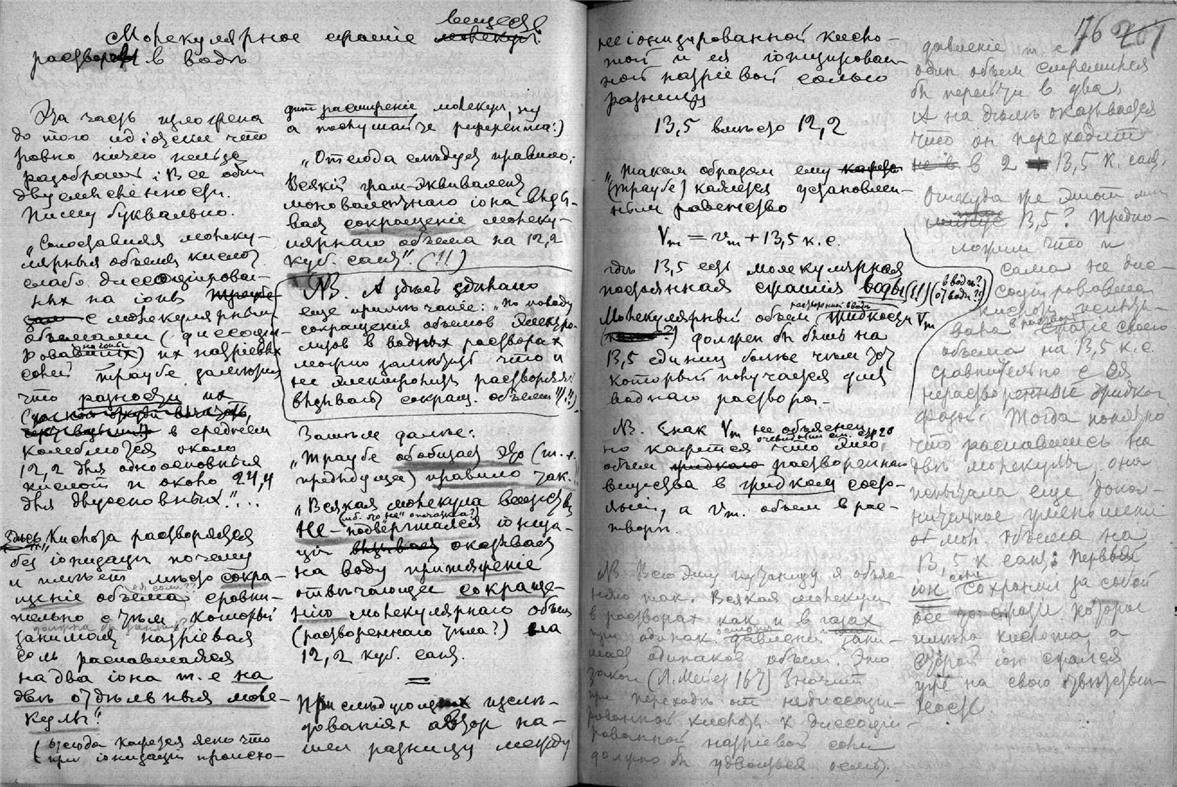 Молекулярное сжатіе веществ
растворов в водѣ
Эта часть изложена
до того идіотски что
ровно ничего нельзя
разобрать: Все одни
двусмысленности.
Пишу буквально.
„Сопоставляя молеку-
лярные объемы кислот
слабо диссоціирован-
ных на іоны
с молекулярными
объемами (диссоціи-
рованных) их натріевых
солей Траубе заметил
что разности их
в среднем
колеблются около
12,2 для одноосновных
кислот и около 24,4
для двуосновных"...
Здесь „Кислота растворяется
без іонизаціи почему
и имѣет мѣсто сокра-
щеніе объема сравни-
тельно с тѣм который
занимает натріевая
соль распавшаяся
на два іона т. е. на
двѣ отдѣльныя моле-
кулы"
(отсюда кажется ясно что
при іонизаціи происхо-
дит расширеніе молекул, ну
а послушайте референта:)
„Отсюда следует правило:
Всякій грам-эквивалент
моновалентнаго іона вызы-
вает сокращеніе молеку-
лярнаго объема на 12,2
куб. сант." (!!)
NB. А здѣсь сдѣлано
еще примѣчаніе: „По поводу
сокращенія объемов электро-
лизов в водных растворах
можно заметить что и
не электролиты растворяясь
вызывают сокращ. объема"!!)
Затѣм далѣе:
„Траубе обобщает это (т. е.
предыдущее) правило так.
„Всякая молекула вещества
не подвергшаяся іониза-
ціи оказывает
на воду притяженіе
отвѣчающее сокраще-
нію молекулярнаго объема
(раствореннаго тѣла?) на
12,2 куб. сант.
При слѣдующих изслѣ-
дованіях автор на-
шел разницу между
неіонизированной кисло-
той и ея іонизирован-
ной натріевой солью
разницу
13,5 вмѣсто 12,2
„Таким образом ему
(Траубе) кажется установлен-
ным равенство
Vm = vm + 13,5 к. с.
гдѣ 13,5 есть молекулярная
постоянная сжатія воды (!) (в воды?) (от воды?!)
Молекулярный объем жидкости Vm
должен бы быть на
13,5 единиц более чѣм тот
который получается для
водного раствора.
NB. Знак Vm не объяснен
но кажется что это
объем раствореннаго
вещества в жидком состо-
яніи, а vm. объем в рас-
творѣ.
NB. Всю эту путаницу я объяс-
няю так. Всякая молекула
в растворах как и в газах
при одинак. давлении зани-
мает одинакой объем. Это
закон (Л. Мейер 167) Значит
при переходѣ от недиссоціи-
рованной кислоты к диссоціи-
рованной натріевой соли
должно бы удвоиться
176
давленіе т. е.
один объем стремится
бы перейти в два.
А на дѣлѣ оказывается
что он переходит
в 2 - 13,5 к. сант.
Откуда же эти
13,5? Предпо-
ложим что и
сама не дис-
социировавшая
кислота
сжатіе своего
объема на 13,5 к. с
сравнительно с ея
нерастворенной жидкой
фазой. Тогда понятно
что распавшись на
двѣ молекулы, она
испытала еще допол-
нительное уменьшеніе
от мол. объема на
13,5 к сант: Первый
іон сохранил за собой
все то сжатіе которое
имѣла кислота а
второй іон сжался
уже на свою отвѣтствен-
ность